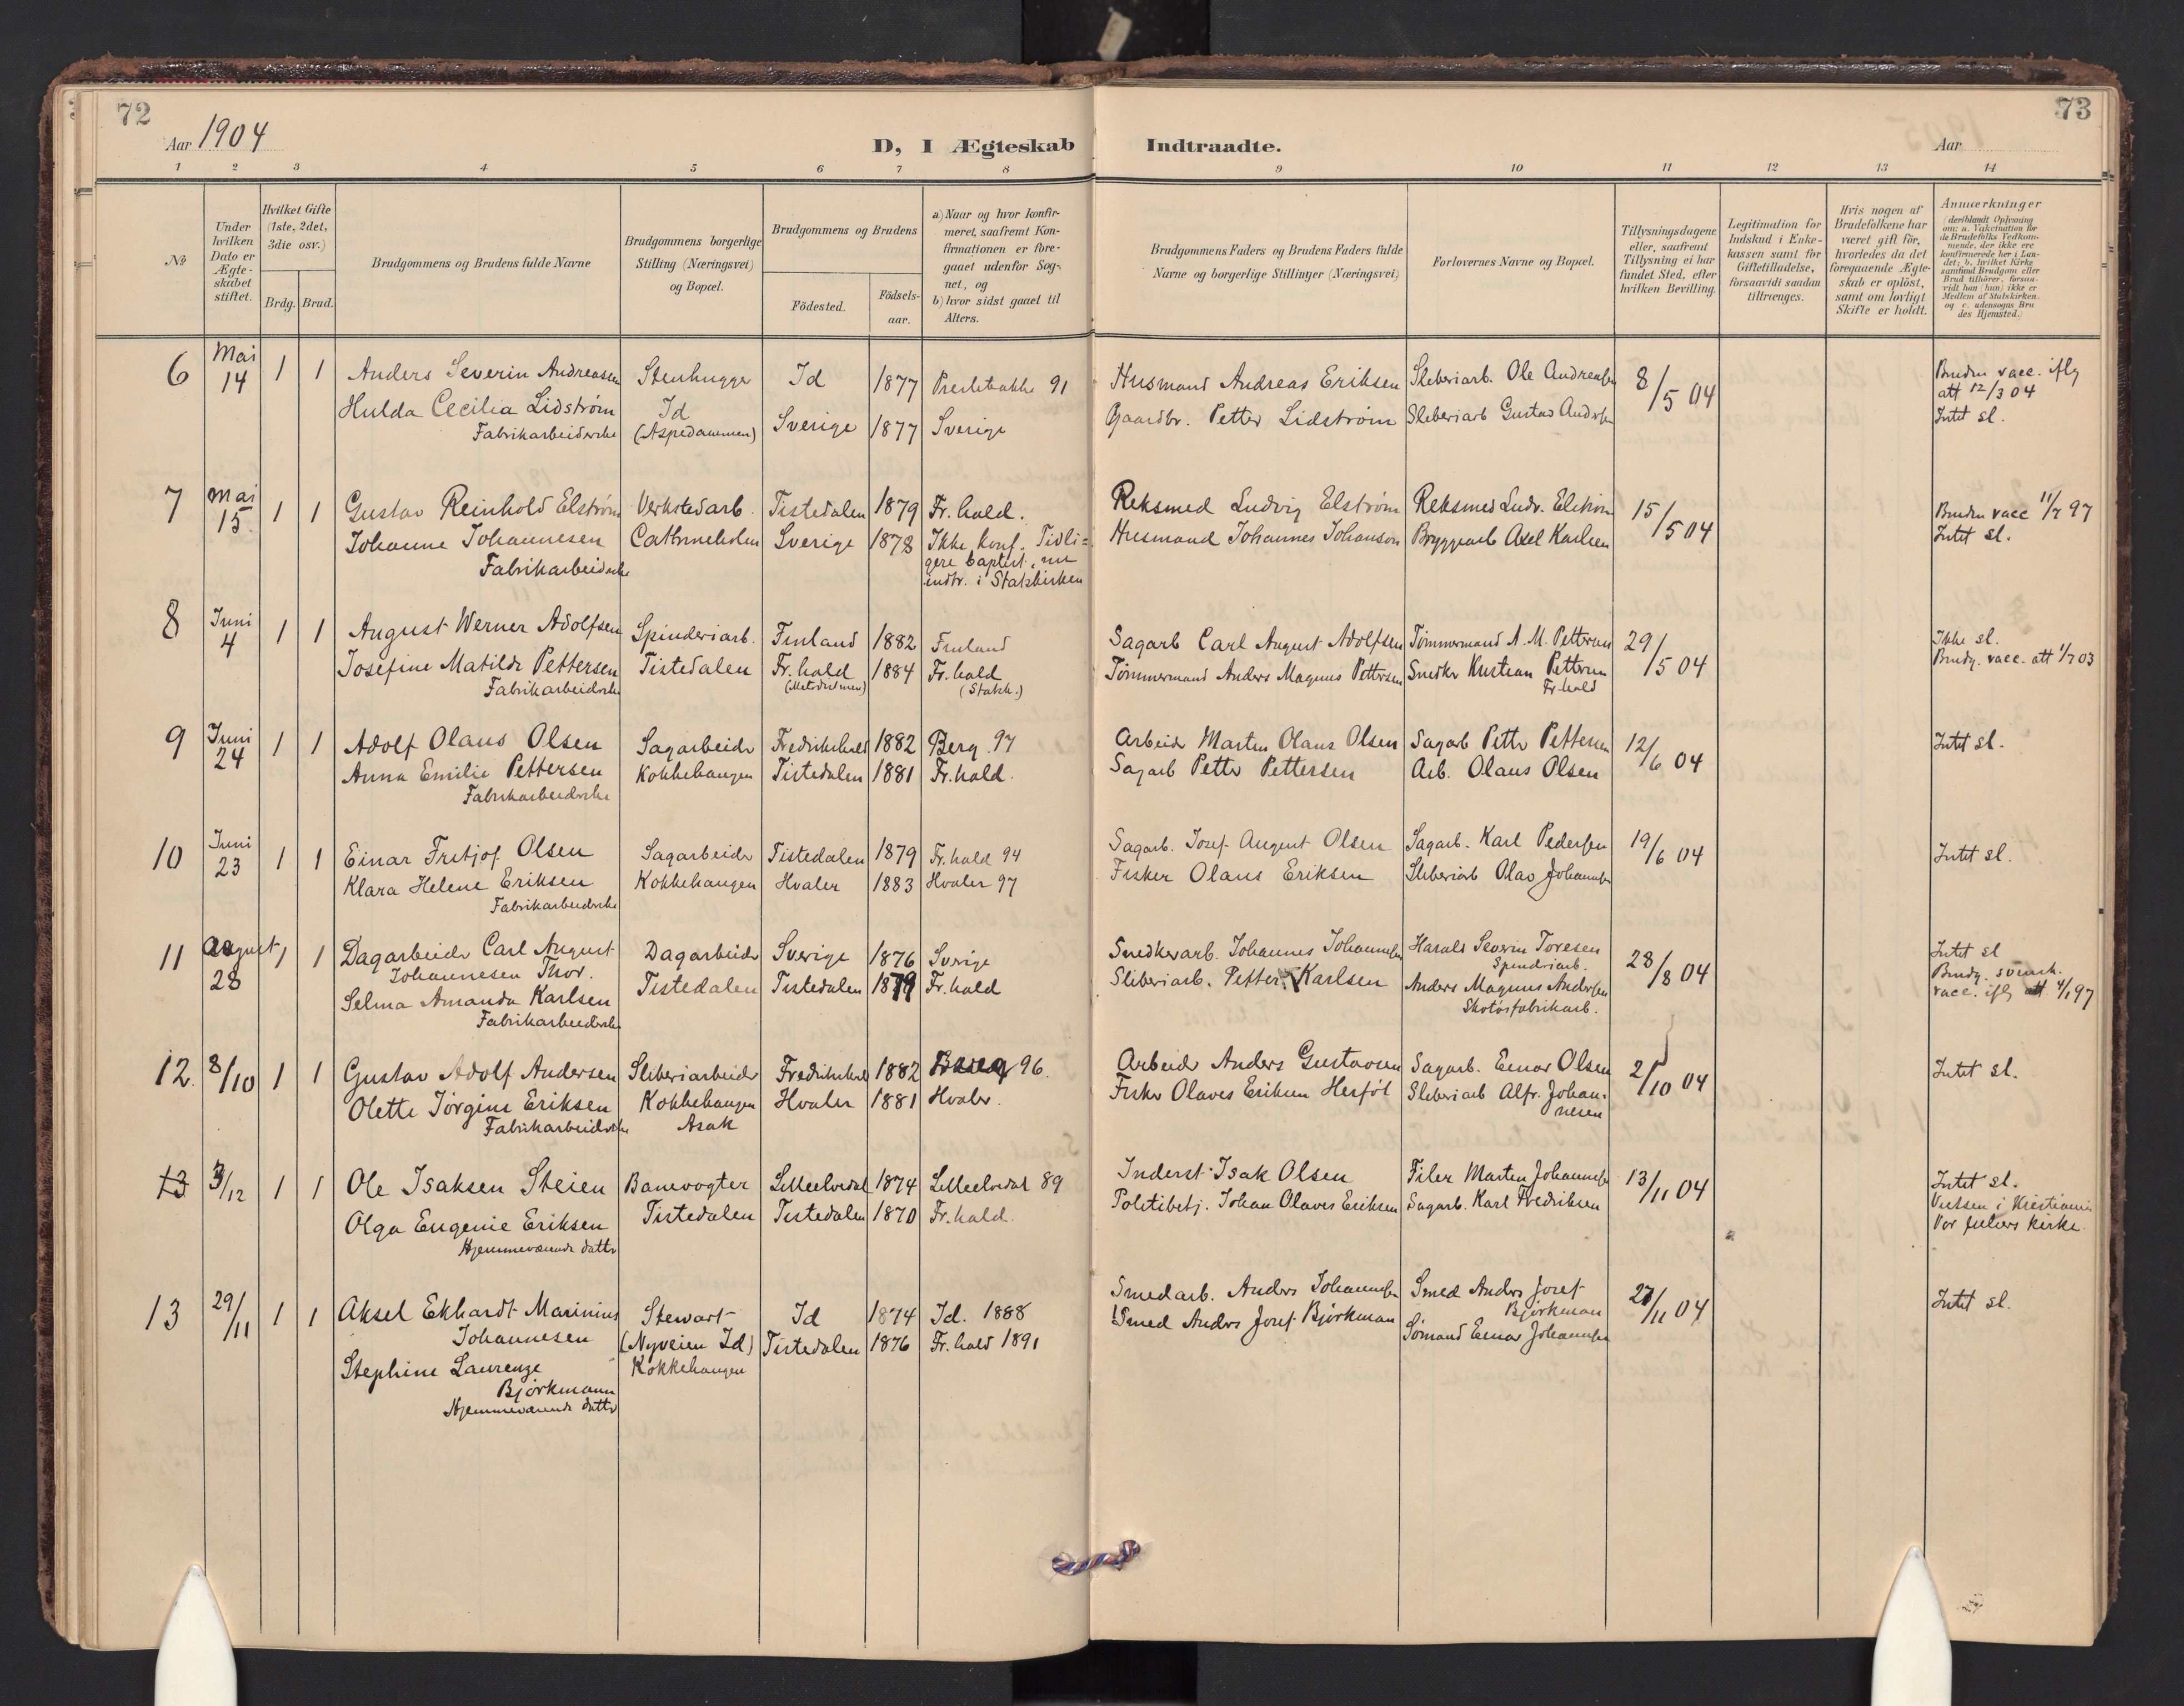 72
Aar 1904
D, I Ægteskab
Indtraadte.
73
Aar
1 2 3 4 5 6 7 8 9 10 11 12 13 14
№
Under hvilken Dato er Ægte-skabet stiftet.
Hvilket Gifte (1ste, 2det, 3die osv.)
Brdg. Brud.
Brudgommens og Brudens fulde Navne
Brudgommens borgerlige Stilling (Næringsvei) og Bopæl.
Brudgommens og Brudens
Födested.
Födsels-aar.
a) Naar og hvor konfir-meret, saafremt Kon-firmationen er fore-gaaet udenfor Sog-net, og
b) hvor sidst gaaet til Alters.
Brudgommens Faders og Brudens Faders fulde Navne og borgerlige Stillinger (Næringsvei)
Forlovernes Navne og Bopæl.
Tillysningsdagene eller, saafremt Tillysning ei har fundet Sted, efter hvilken Bevilling.
Legitimation for Indskud i Enke-kassen samt for Giftetilladelse, forsaavidt saadan tiltrænges.
Hvis nogen af Brudefolkene har været gift för, hvorledes da det foregaaende Ægte-skab er oplöst, samt om lovligt Skifte er holdt.
Anmærkninger (deriblandt Oplysning om: a. Vakcination for de Brudefolks Vedkom-mende, der ikke ere konfirmerede her i Lan-det; b. hvilket Kirke-samfund Brudgom eller Brud tilhörer, forsaa-vidt han (hun) ikke er Medlem af Statskirken. og c. udensogns Bru des Hjemsted.)
6 Mai 14 1 1 Anders Severin Andreasen Stenhugger Id 1877 Prestebakke 91 Husmand Andreas Eriksen Sliberiarb. Ole Andreasen 8/5 04 Bruden vacc. iflg
att 12/3 04
Hulda Cecilia Lidstrøm Id Sverige 1877 Sverige Gaardbr. Petter Lidstrøm Sliberiarb Gustav Andersen Intet sl.
Fabrikarbeiderske (Aspedammen)
7 Mai 15 1 1 Gustav Reinhold Elstrøm Verkstedarb. Tistedalen 1879 Fr.hald. Reksmed Ludvig Elstrøm Reksmed Ludv. Elstrøm 15/5 04 Bruden vacc 11/7 97
Johanne Johannesen Sverige 1878 Ikke konf. Tidli= Husmand Johannes Johanson Bryggearb Axel Karlsen Intet sl.
Fabrikarbeiderske gere baptist, nu
indtr. i Statskirken
8 Juni 4 1 1 August Werner Adolfsen Spinderiarb. Finland 1882 Finland Sagarb Carl August Adolfsen Tømmermand A. M. Pettersen 29/5 04 Ikke sl.
Josefine Matilde Pettersen Tistedalen Fr.hald 1884 Fr.hald Tømmermand Anders Magnus Pettersen Snedker Kristian Pettersen Brudg. vacc. att 1/7 03
Fabrikarbeiderske (Statsk.) Fr.hald
9 Juni 24 1 1 Adolf Olaus Olsen Sagarbeider Fredrikshald 1882 Berg 97 Arbeider Martin Olaus Olsen Sagarb Petter Pettersen 12/6 04 Intet sl.
Anna Emilie Pettersen Kokkehaugen Tistedalen 1881 Fr.hald. Sagarb Petter Pettersen Arb. Olaus Olsen
Fabrikarbeiderske
10 Juni 23 1 1 Einar Fritjof Olsen Sagarbeider Tistedalen 1879 Fr.hald 94 Sagarb. Josef August Olsen Sagarb. Karl Pedersen 19/6 04 Intet sl.
Klara Helene Eriksen Kokkehaugen Hvaler 1883 Hvaler 97 Fisker Olaus Eriksen Sliberiarb Olav Johannesen
Fabrikarbeiderske
11 August 28 1 1 Dagarbeider Carl August Dagarbeider Sverige 1876 Sverige Snedkerarb. Johannes Johannesen Harald Severin Toresen 28/8 04 Intet sl
Johannesen Thor. Spinderiarb. Brudg. svensk.
Selma Amanda Karlsen Tistedalen Tistedalen 1879 Fr.hald Sliberiarb. Petter Karlsen Anders Magnus Andersen vacc. iflg att 4/1 97
Fabrikarbeiderske Skotøsfabrikarb.
12. 8/10 1 1 Gustav Adolf Andersen Sliberiarbeider Fredrikshald 1882 Berg 96. Arbeider Anders Gustavsen Sagarb. Einar Olsen 2/10 04 Intet sl.
Olette Jørgine Eriksen Kokkehaugen Hvaler 1881 Hvaler. Fisker Olaves Eriksen Herføl Sliberiarb Alfr. Johan-
Fabrikarbeiderske Asak nesen
13 3/12 1 1 Ole Isaksen Steien Banevogter 1874 89 Inderst Isak Olsen Filer Marten Johannesen 13/11 04 Intet sl.
Olga Eugenie Eriksen Tistedalen Tistedalen 1870 Fr.hald. Politibetj. Johan Olaves Eriksen Sagarb. Karl Fredriksen Vielsen i Kristiania
Hjemmeværende datter Vor frelsers kirke
13 29/11 1 1 Aksel Ekhardt Marinius Stewart Id 1874 Id. 1888 Smedarb. Anders Johannesen Smed Anders Josef 27/11 04 Intet sl.
Johannesen (Nyveien Id) Tistedalen 1876 Fr.hald 1891 Smed Anders Josef Bjørkman Bjørkman
Stephine Laurenze Kokkehaugen Sømand Einar Johannesen
Bjørkmann
Hjemmeværende datter